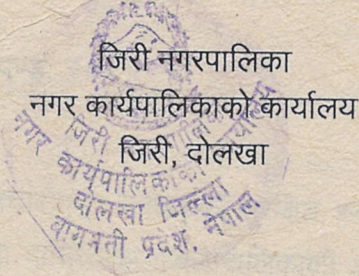 जिरी नगरपालिका
नगर कार्यपालिकाको कार्यालय
जिरी, दोलखा
जिरी नगरपालिका
नगर कार्यपालिकाको कार्यालय
दोलखा जिल्ला
वागमती प्रदेश, नेपाल